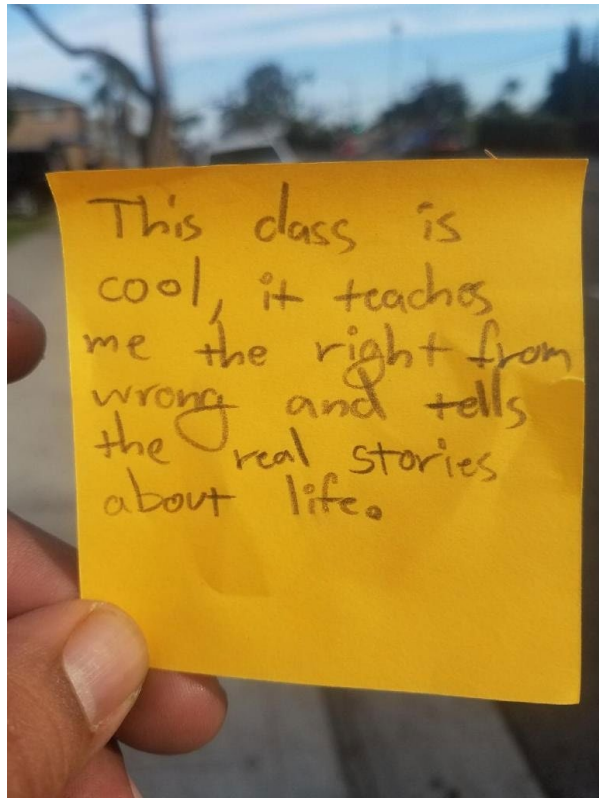 This class is
cool, it teaches
me the right from
wrong and tells
the real stories
about life.